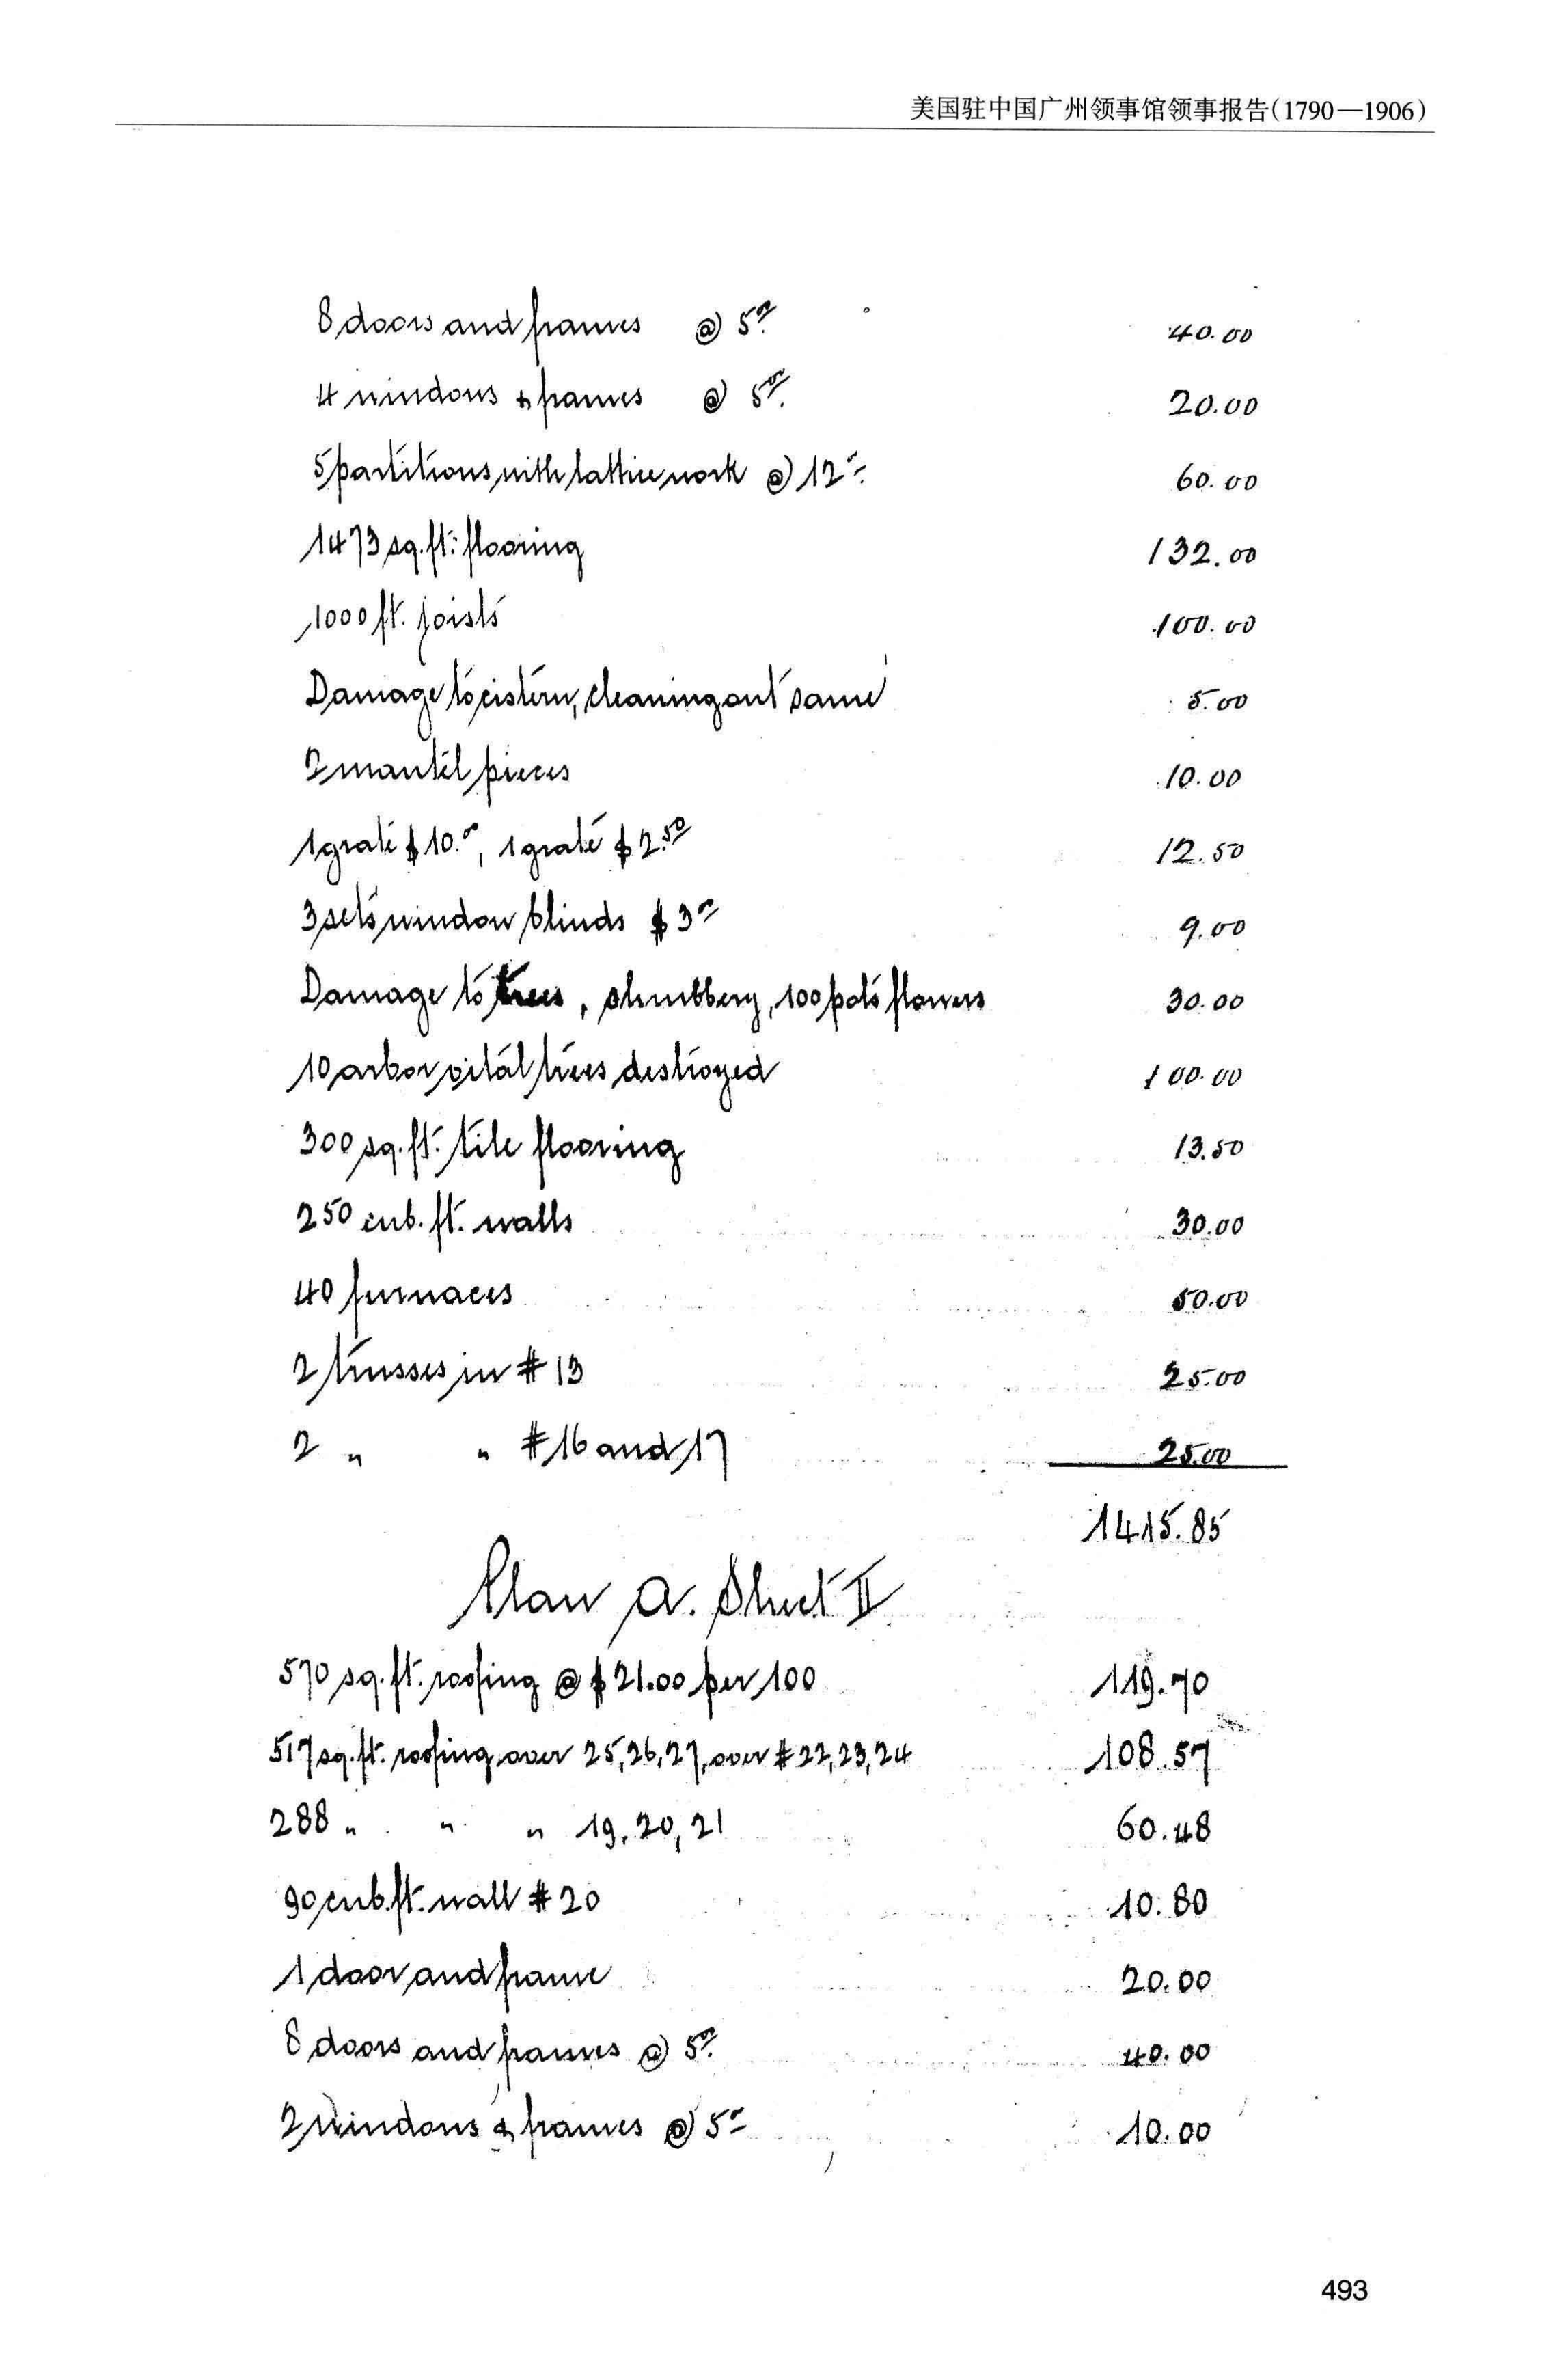 美国驻中国广州领事馆领事报告(1790—1906)
8 doors and frames @ 5.00 40.00
4 windows & frames @ 5.00 20.00
5 partitions with lattice work @ 12.- 60.00
1473 sq. ft. flooring 132.00
1000 ft. joists 100.00
Damage to cistern, cleaning out same 5.00
2 mantel pieces 10.00
1 grate $10.00, 1 grate $2.50 12.50
3 sets window blinds $3.00 9.00
Damage to trees, shrubbery, 100 pots flowers 30.00
10 arbor vital trees destroyed 100.00
300 sq. ft. tile flooring 13.50
250 cub. ft. walls 30.00
40 furnaces 50.00
2 trusses in #13 25.00
2 " " #16 and 17 25.00
1415.85
Plan A. Sheet II
570 sq. ft. roofing @ $21.00 per 100 119.70
517 sq. ft. roofing over 25, 26, 27, over #22, 23, 24 108.57
288 " " " 19, 20, 21 60.48
90 cub. ft. wall #20 10.80
1 door and frame 20.00
8 doors and frames @ 5.00 40.00
2 windows & frames @ 5.- 10.00
493